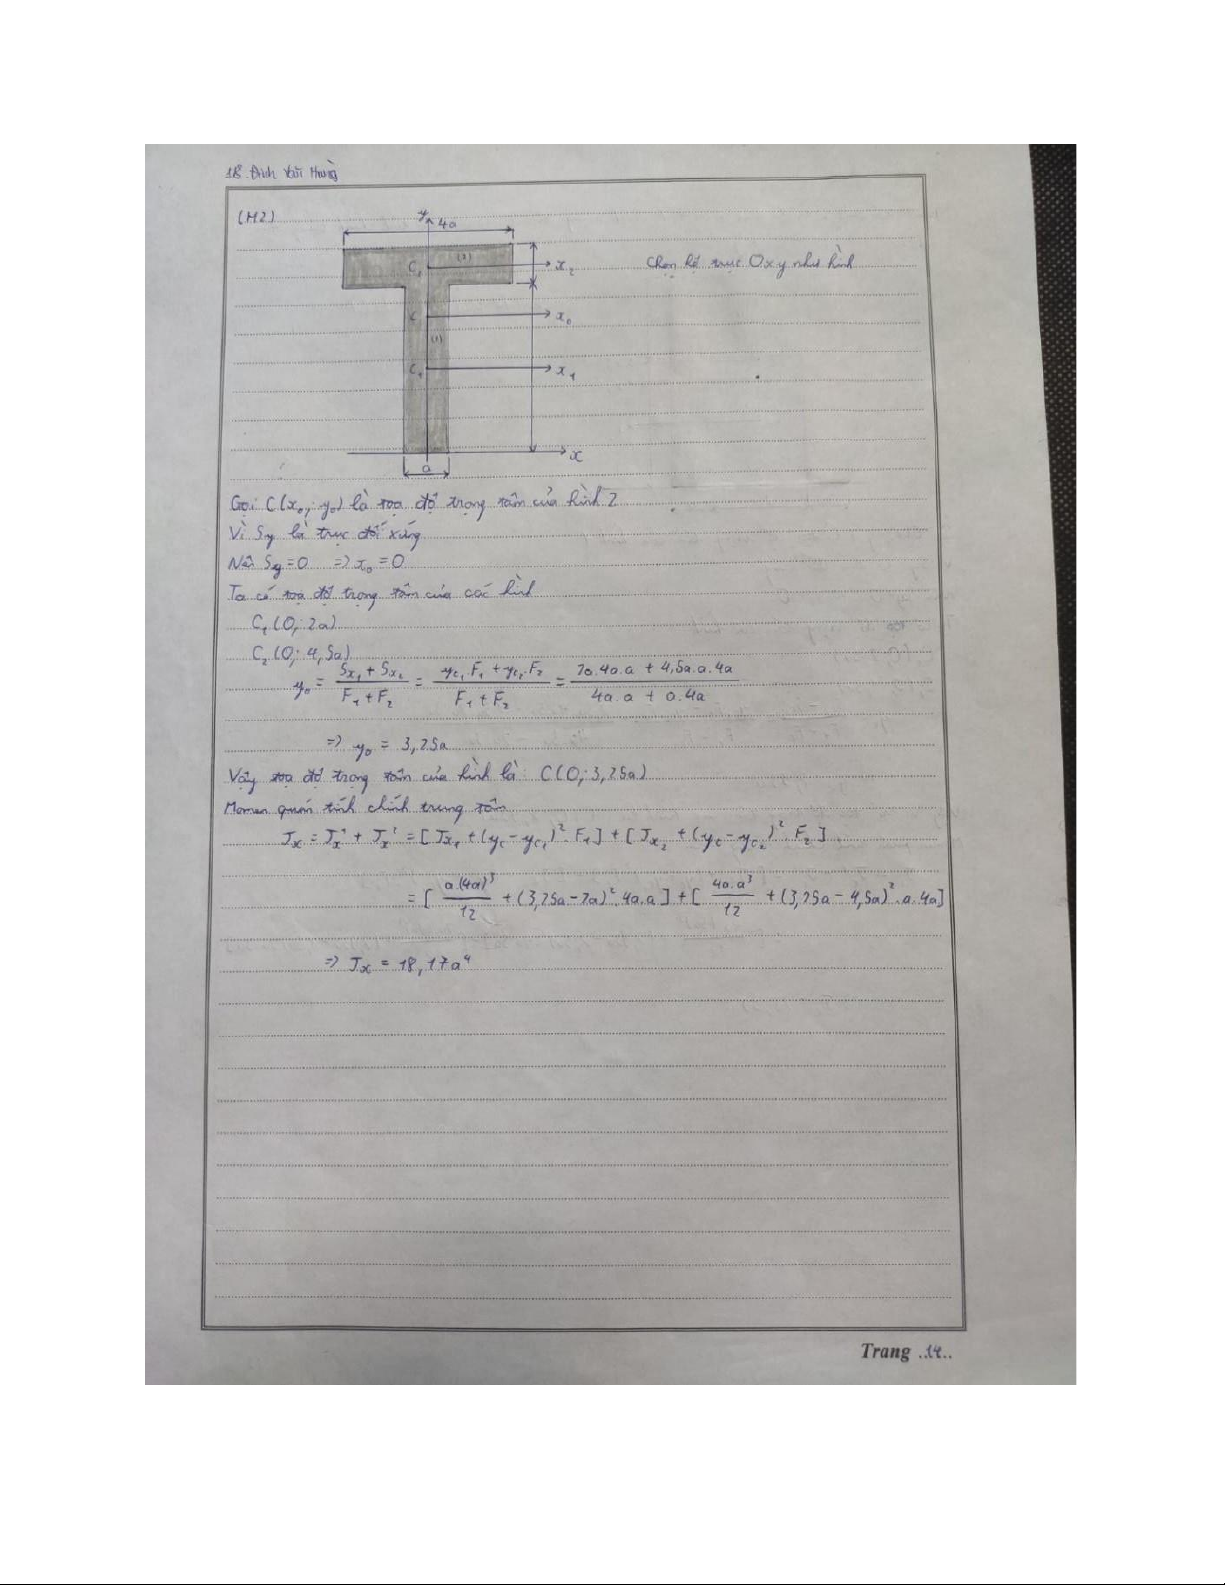 18. Đinh Văn Hưng
(H2)
y
4a
C₂ (2) x₂
Chọn hệ trục Oxy như hình
C x₀
(1)
C₁ x₁
x
a
Gọi C(x₀; y₀) là tọa độ trọng tâm của hình 2
Vì Sy là trục đối xứng
Nên Sy = 0 => x₀ = 0
Ta có tọa độ trọng tâm của các hình
C₁ (0; 2a)
C₂ (0; 4,5a)
y₀ = (Sx₁ + Sx₂)/(F₁ + F₂) = (yc₁.F₁ + yc₂.F₂)/(F₁ + F₂) = (2a.4a.a + 4,5a.a.4a)/(4a.a + a.4a)
=> y₀ = 3,25a
Vậy tọa độ trọng tâm của hình là: C(0; 3,25a)
Momen quán tính chính trung tâm
Jx = Jx¹ + Jx² = [Jx₁ + (yc - yc₁)².F₁] + [Jx₂ + (yc - yc₂)².F₂]
= [a.(4a)³/12 + (3,25a - 2a)².4a.a] + [4a.a³/12 + (3,25a - 4,5a)².a.4a]
=> Jx = 18,17a⁴
Trang ..14..